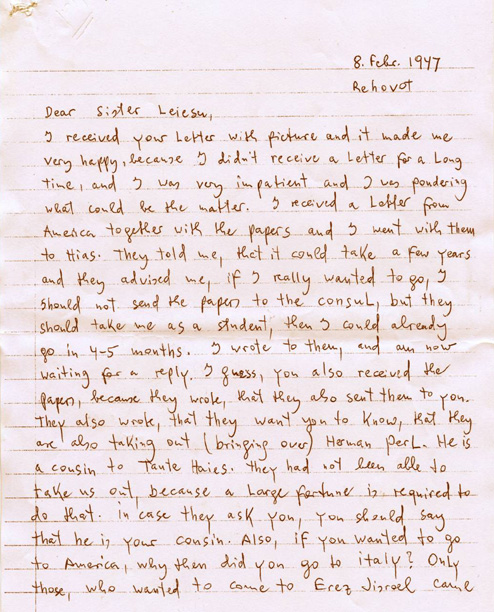 8. Febr. 1947
Rehovot
Dear Sister Leiesu,
I received your Letter with picture and it made me
very happy, because I didn't receive a Letter for a Long
time, and I was very impatient and I was pondering
what could be the matter. I received a Letter from
America together with the papers and I went with them
to Hias. They told me, that it could take a few years
and they advised me, if I really wanted to go, I
should not send the papers to the consul, but they
should take me as a student, then I could already
go in 4-5 months. I wrote to them, and am now
waiting for a reply. I guess, you also received the
papers, because they wrote, that they also sent them to you.
They also wrote, that they want you to know, that they
are also taking out (bringing over) Herman Perl. He is
a cousin to Tante Haies. They had not been able to
take us out, because a Large fortune is required to
do that. in case they ask you, you should say
that he is your cousin. Also, if you wanted to go
to America, why then did you go to italy? Only
those, who wanted to come to Erez Jisroel came